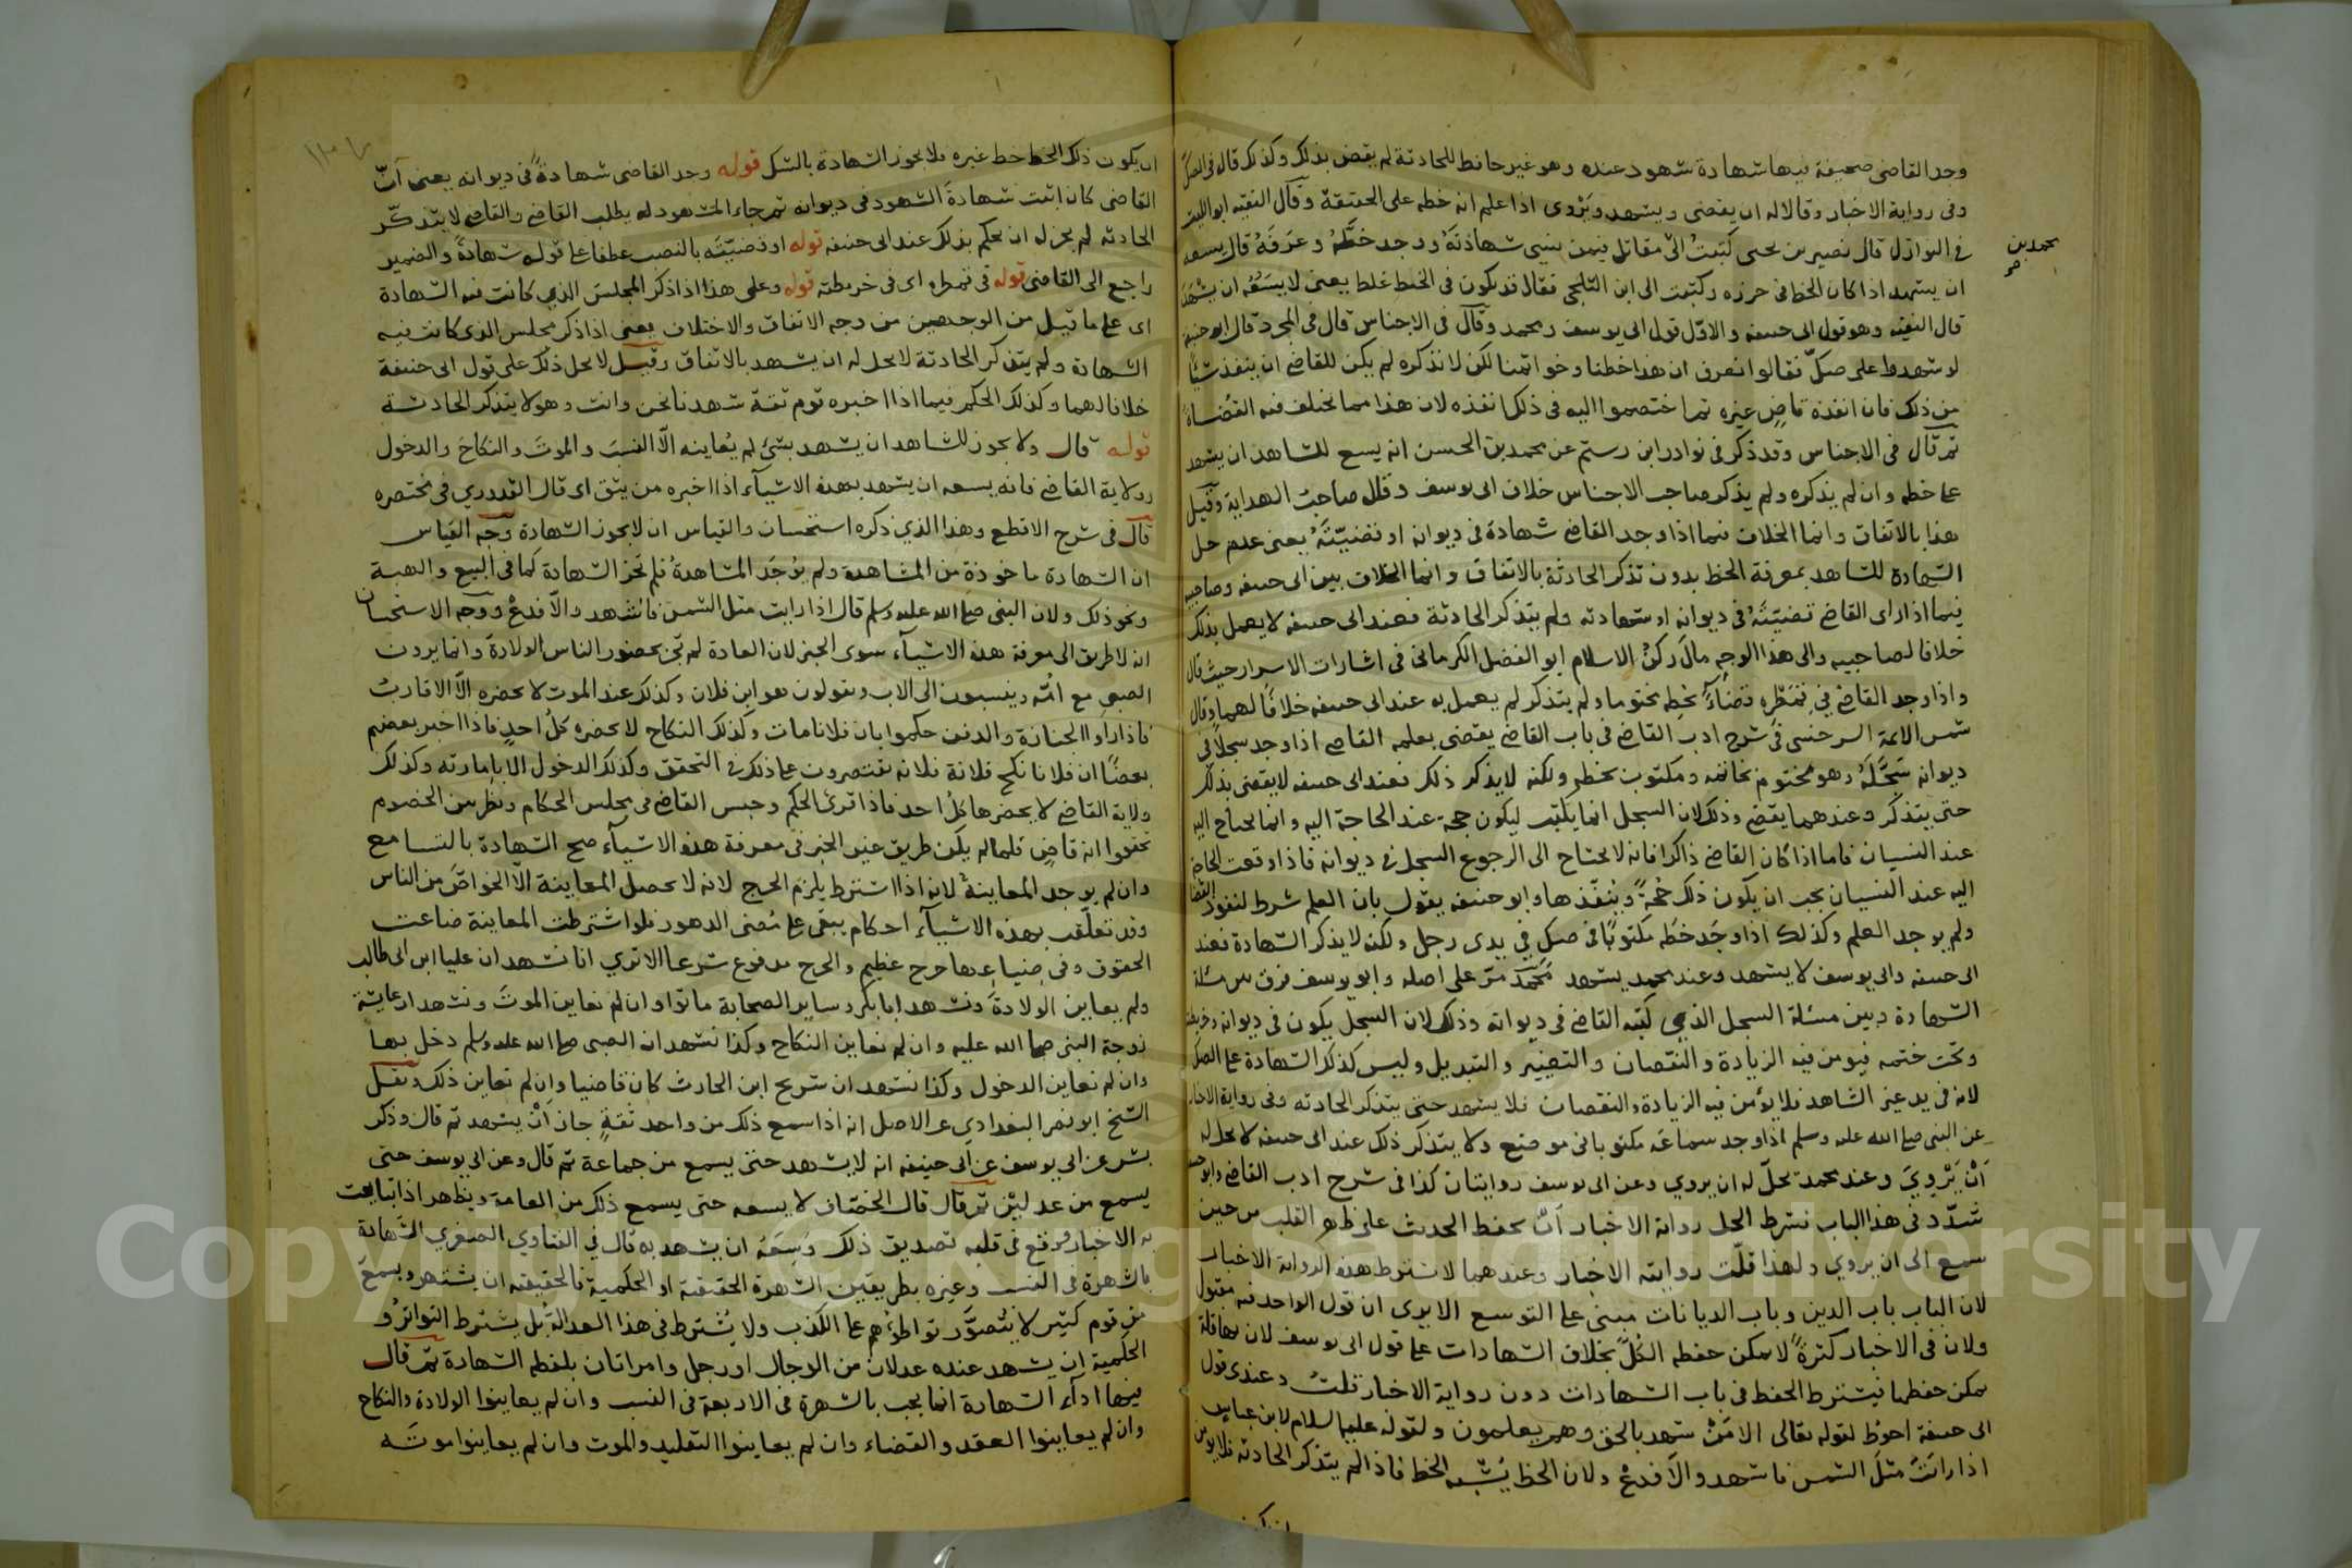 وجد القاضى صحيفة فيها شهادة شهود عنده وهو غير حافظ للحادثة لم يقض بذلك وكذلك قال فى الصك
وفى رواية الاخبار وقالا له ان يقضى ويشهد ويروى اذا علم انه خطه على الحقيقة وقال الفقيه ابو الليث
فى النوازل قال نصير بن يحيى كتبتُ الى مقاتل فيمن نسى شهادتَهُ ووجد خطَّهُ وعرَفَهُ قال يسعه
محمد بن
ان يشهد اذا كان الخط فى حرزه وكتبت الى ابن الثلجى فقال قد يكون فى الخط غلط يعنى لا يسَعُه ان يشهَدَ
قال الفقيه وهو قول ابى حنيفه والاوّل قول ابى يوسف ومحمد وقال فى الاجناس قال فى المجرد قال ابو حنيفة
لو شهدوا على صكّ فقالوا نعرف ان هذا خطنا وخواتمنا لكن لا نذكره لم يكن للقاضى ان ينفذ شيئًا
من ذلك فان انفذه قاضٍ غيره ثم اختصموا اليه فى ذلك انفذه لان هذا مما يختلف فيه القضاة
ثم قال فى الاجناس وقد ذكر فى نوادر ابن رستم عن محمد بن الحسن انه يسع للشاهد ان يشهد
على خطه وان لم يذكره ولم يذكر صاحب الاجناس خلاف ابى يوسف وقال صاحب الهداية وقيل
هذا بالاتفاق وانما الخلاف فيما اذا وجد القاضى شهادة فى ديوانه او قضيّتَهُ يعنى عدم حل
الشهادة للشاهد بمعرفة الخط بدون تذكر الحادثة بالاتفاق وانما الخلاف بين ابى حنيفه وصاحبيه
فيما اذا راى القاضى قضيّتَهُ فى ديوانه او شهادته ولم يتذكر الحادثة فعند ابى حنيفه لا يعمل بذلك
خلافا لصاحبيه والى هذا الوجه مالَ ركنُ الاسلام ابو الفضل الكرمانى فى اشارات الاسرار حيث قال
واذا وجد القاضى فى قمَطْرِه قضاءً بخطِه مختوما ولم يتذكر لم يعمل به عند ابى حنيفه خلافًا لهما وقال
شمس الائمة السرخسى فى شرح ادب القاضى فى باب القاضى يقضى بعلمه القاضى اذا وجد سجلًا فى
ديوانه سَجَّلَهُ وهو مختوم بخاتمه ومكتوب بخطه ولكنه لا يذكر ذلك فعند ابى حنيفه لا يقضى بذلك
حتى يتذكر وعندهما يقضى وذلك لان السجل انما يكتب ليكون حجة عند الحاجة اليه وانما يحتاج اليه
عند النسيان فاما اذا كان القاضى ذاكرا فانه لا يحتاج الى الرجوع السجل فى ديوانه فاذا وقعت الحاجة
اليه عند النسيان يجب ان يكون ذلك حُجةً وينفّذها وابو حنيفه يقول بان العلم شرط لنفوذ القضا
ولم يوجد العلم وكذلك اذا وجَد خطُه مكتوبًا فى صك فى يدى رجل ولكن لا يذكر الشهادة فعند
ابى حنيفه وابى يوسف لا يشهد وعند محمد يشهد مُحَمَّد مرّ على اصله وابو يوسف فرق بين مسئلة
الشهادة وبين مسئلة السجل الذي كتبه القاضى فى ديوانه وذلك لان السجل يكون فى ديوانه وخريطته
وتحت ختمه فيومن فيه الزيادة والنقصان والتغيير والتبديل وليس كذلك الشهادة على الصك
لانه فى يد غير الشاهد فلا يؤمن فيه الزيادة والنقصان فلا يشهد حتى يتذكر الحادثه وفى رواية الاخبار
عن النبى صلى الله عليه وسلم اذا وجد سماعَه مكتوبا فى موضع ولا يتذكر ذلك عند ابى حنيفه لا يحل له
اَنْ يَرْوِيَ وعند محمد يحلّ له ان يروي وعن ابى يوسف روايتان كذا فى شرح ادب القاضى وابو حنيفة
شدّد فى هذا الباب فشرط لحل رواية الاخبار اَنْ يحفظ الحديث على ظهر القلب من حين
سمع الى ان يروي ولهذا قلّت روايته الاخبار وعندهما لا يشترط هذه الرواية الاخبار
لان الباب باب الدين وباب الديانات مبنى على التوسع الا يرى ان قول الواحد فيه مقبول
ولان فى الاخبار كثرةً لا يمكن حفظه الكُلّ بخلاف الشهادات على قول ابى يوسف لان بها قلة
يمكن حفظها فيشترط الحفظ فى باب الشهادات دون رواية الاخبار قلتُ وعندى قول
ابى حنيفة احوط لقوله تعالى الا مَنْ شهد بالحق وهم يعلمون ولقوله عليه السلام لابن عباس
اذا رايتَ مثلَ الشمس فاشهد والّا فدعْ ولان الخط يُشبه الخط فاذا لم يتذكر الحادثه فلا يومن
ان يكون
ان يكون ذلك الخط خط غيره فلا يجوز الشهادة بالشك قوله وجد القاضى شهادةً فى ديوانه يعنى اَنّ
القاضى كان اثبت شهادةَ الشهود فى ديوانه ثم جاء المشهود له يطلب القاضى والقاضى لا يتذكّر
الحادثه لم يجز له ان يحكم بذلك عند ابى حنيفه قوله او قضيّتَه بالنصب عطفا على قوله شهادةً والضمير
راجع الى القاضى قوله فى قمطره اى فى خريطته قوله وعلى هذا اذا ذكر المجلسَ الذي كانت فيه الشهادة
اى على ما قيل من الوجهين من وجه الاتفاق والاختلاف يعنى اذا ذكر مجلس الذى كانت فيه
الشهادة ولم يتذكر الحادثة لا يحل له ان يشهد بالاتفاق وقيل لا يحل ذلك على قول ابى حنيفة
خلافا لهما وكذلك الحكم فيما اذا اخبره قوم ثقة شهدنا نحن وانت وهو لا يتذكر الحادثة
قوله قال ولا يجوز للشاهد ان يشهد بشئ لم يُعاينه الّا النسبَ والموتَ والنكاحَ والدخول
وولاية القاضى فانه يسعه ان يشهد بهذه الاشيآء اذا اخبره من يثق اى قال القدوري فى مختصره
قال فى شرح الاقطع وهذا الذي ذكره استحسان والقياس ان لا يجوز الشهادة وجه القياس
ان الشهادة ماخوذة من المشاهدة ولم يُوجَد المشاهدةُ فلم تجز الشهادة كما فى البيع والهبة
ونحو ذلك ولان النبى صلى الله عليه وسلم قال اذا رايت مثل الشمس فاشهد والّا فدعْ ووجه الاستحسان
انه لا طريق الى معرفة هذه الاشيآء سوى الخبر لان العادة لم تجر بحضور الناس الولادةَ وانما يرون
الصبى مع اُمِّه وينسبون الى الاب ويقولون هو ابن فلان وكذلك عند الموت لا يحضره الّا الاقارب
فاذا راوا الجنازة والدفن حكموا بان فلانا مات وكذلك النكاح لا يحضره كلُ احدٍ فاذا اخبر بعضهم
بعضًا ان فلانا نكح فلانة فلانه يقتصرون على ذلك فى التحقق وكذلك الدخول الا بامارته وكذلك
ولاية القاضى لا يحضرها كلُ احد فاذا قرئ الحكم وجلس القاضى فى مجلس الحكام ونظر بين الخصوم
تحققوا انه قاضٍ فلما لم يكن طريق غير الخبر فى معرفة هذه الاشيآء صح الشهادة بالتسامع
وان لم يوجد المعاينةُ لانه اذا اشترط يلزم الحرج لانه لا يحصل المعاينة الّا الخواصَّ من الناس
وقد تعلّقت بهذه الاشيآء احكام يبقى على مُضى الدهور فلو اشترطت المعاينة ضاعت
الحقوق وفى ضياعها حرج عظيم والحرج مدفوع شرعا الا تري انا نشهد ان عليا ابن ابى طالب
ولم يعاين الولادةَ ونشهد ابا بكر وساير الصحابة ماتوا وان لم نعاين الموتَ ونشهد ان عايشة
زوجة النبى صلى الله عليه وان لم نعاين النكاح وكذا نشهد ان النبى صلى الله عليه وسلم دخل بها
وان لم نعاين الدخول وكذا نشهد ان شريح ابن الحارث كان قاضيا وان لم نعاين ذلك ونقل
الشيخ ابو نصر البغدادي عن الاصل انه اذا سمع ذلك من واحد ثقةٍ جاز اَنْ يشهد ثم قال وذكر
بشر عن ابي يوسف عن ابى حنيفه انه لا يشهد حتى يسمع من جماعة ثم قال وعن ابى يوسف حتى
يسمع من عدلين ثم قال قال الخصّاف لا يسعه حتى يسمع ذلك من العامة ويظهر اذا تتابعت
به الاخبار ووقع فى قلبه تصديق ذلك وَسِعَهُ ان يشهد به قال في الفتاوي الصغري الشهادة
بالشهرة فى النسب وغيره بطريقين الشهرة الحقيقية او الحكمية فالحقيقيه ان يشتهر ويسمعَ
من قوم كثير لا يُتصوّر تواطؤهم على الكذب ولا يُشترط فى هذا العدالةُ بل يشترط التواترُ و
الحكمية ان يشهد عنده عدلان من الرجال او رجل وامراتان بلفظه الشهادة ثم قال
فيها ادآء الشهادة انما يجب بالشهرة فى الاربعة فى النسب وان لم يعاينوا الولادة والنكاح
وان لم يعاينوا العقد والقضاء وان لم يعاينوا التقليد والموت وان لم يعاينوا موتَه
Copyright © King Saud University